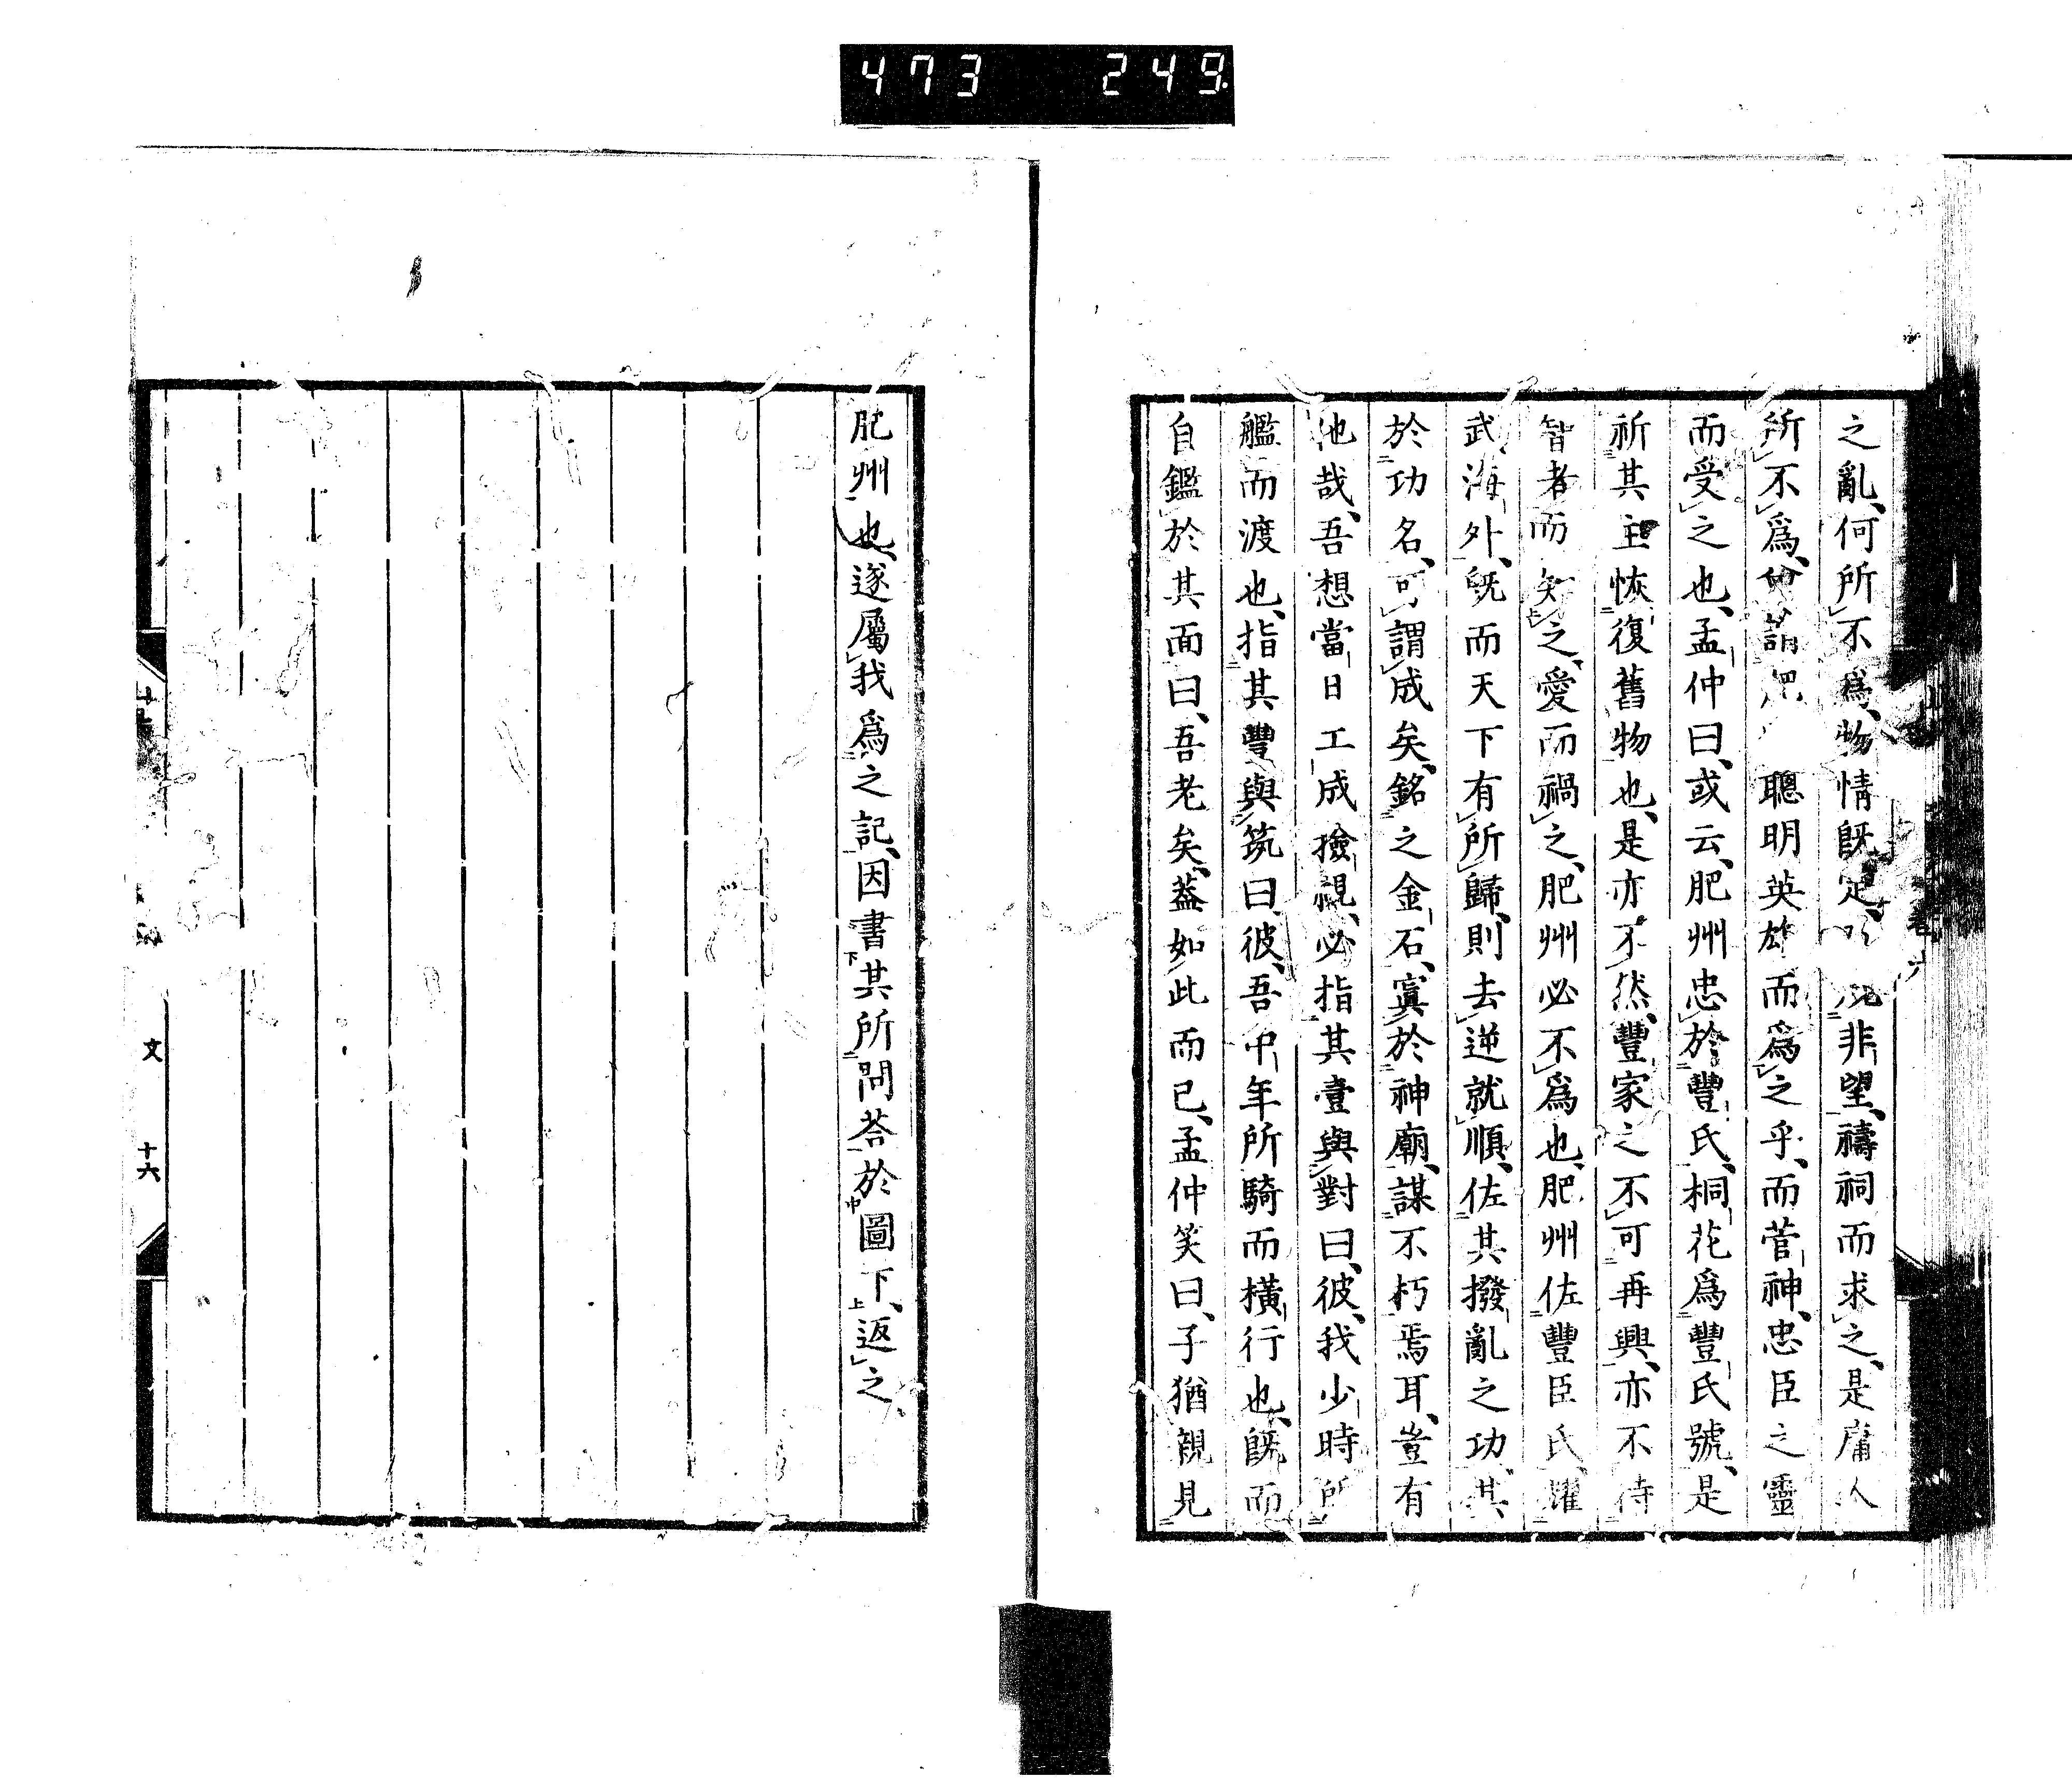 473 249
之亂、何所不爲、物情既定、非望、禱祠而求之、是庸人
所不爲、謂肥聰明英雄而爲之乎、而菅神、忠臣之靈
而受之也、孟仲曰、或云、肥州忠於豐氏、桐花爲豐氏號、是
祈其主恢復舊物也、是亦不然、豐家之不可再興、亦不待
智者而知之、愛而禍之、肥州必不爲也、肥州佐豐臣氏、耀
武海外、既而天下有所歸、則去逆就順、佐其撥亂之功、其
於功名、可謂成矣、銘之金石、寘於神廟、謀不朽焉耳、豈有
他哉、吾想當日工成撿視、必指其壹與對曰、彼、我少時所
艦而渡也、指其豐與筑曰、彼、吾中年所騎而橫行也、既而
自鑑於其面曰、吾老矣、蓋如此而已、孟仲笑曰、子猶親見
肥州也、遂屬我爲之記、因書其所問荅於圖下、返之
文 十六